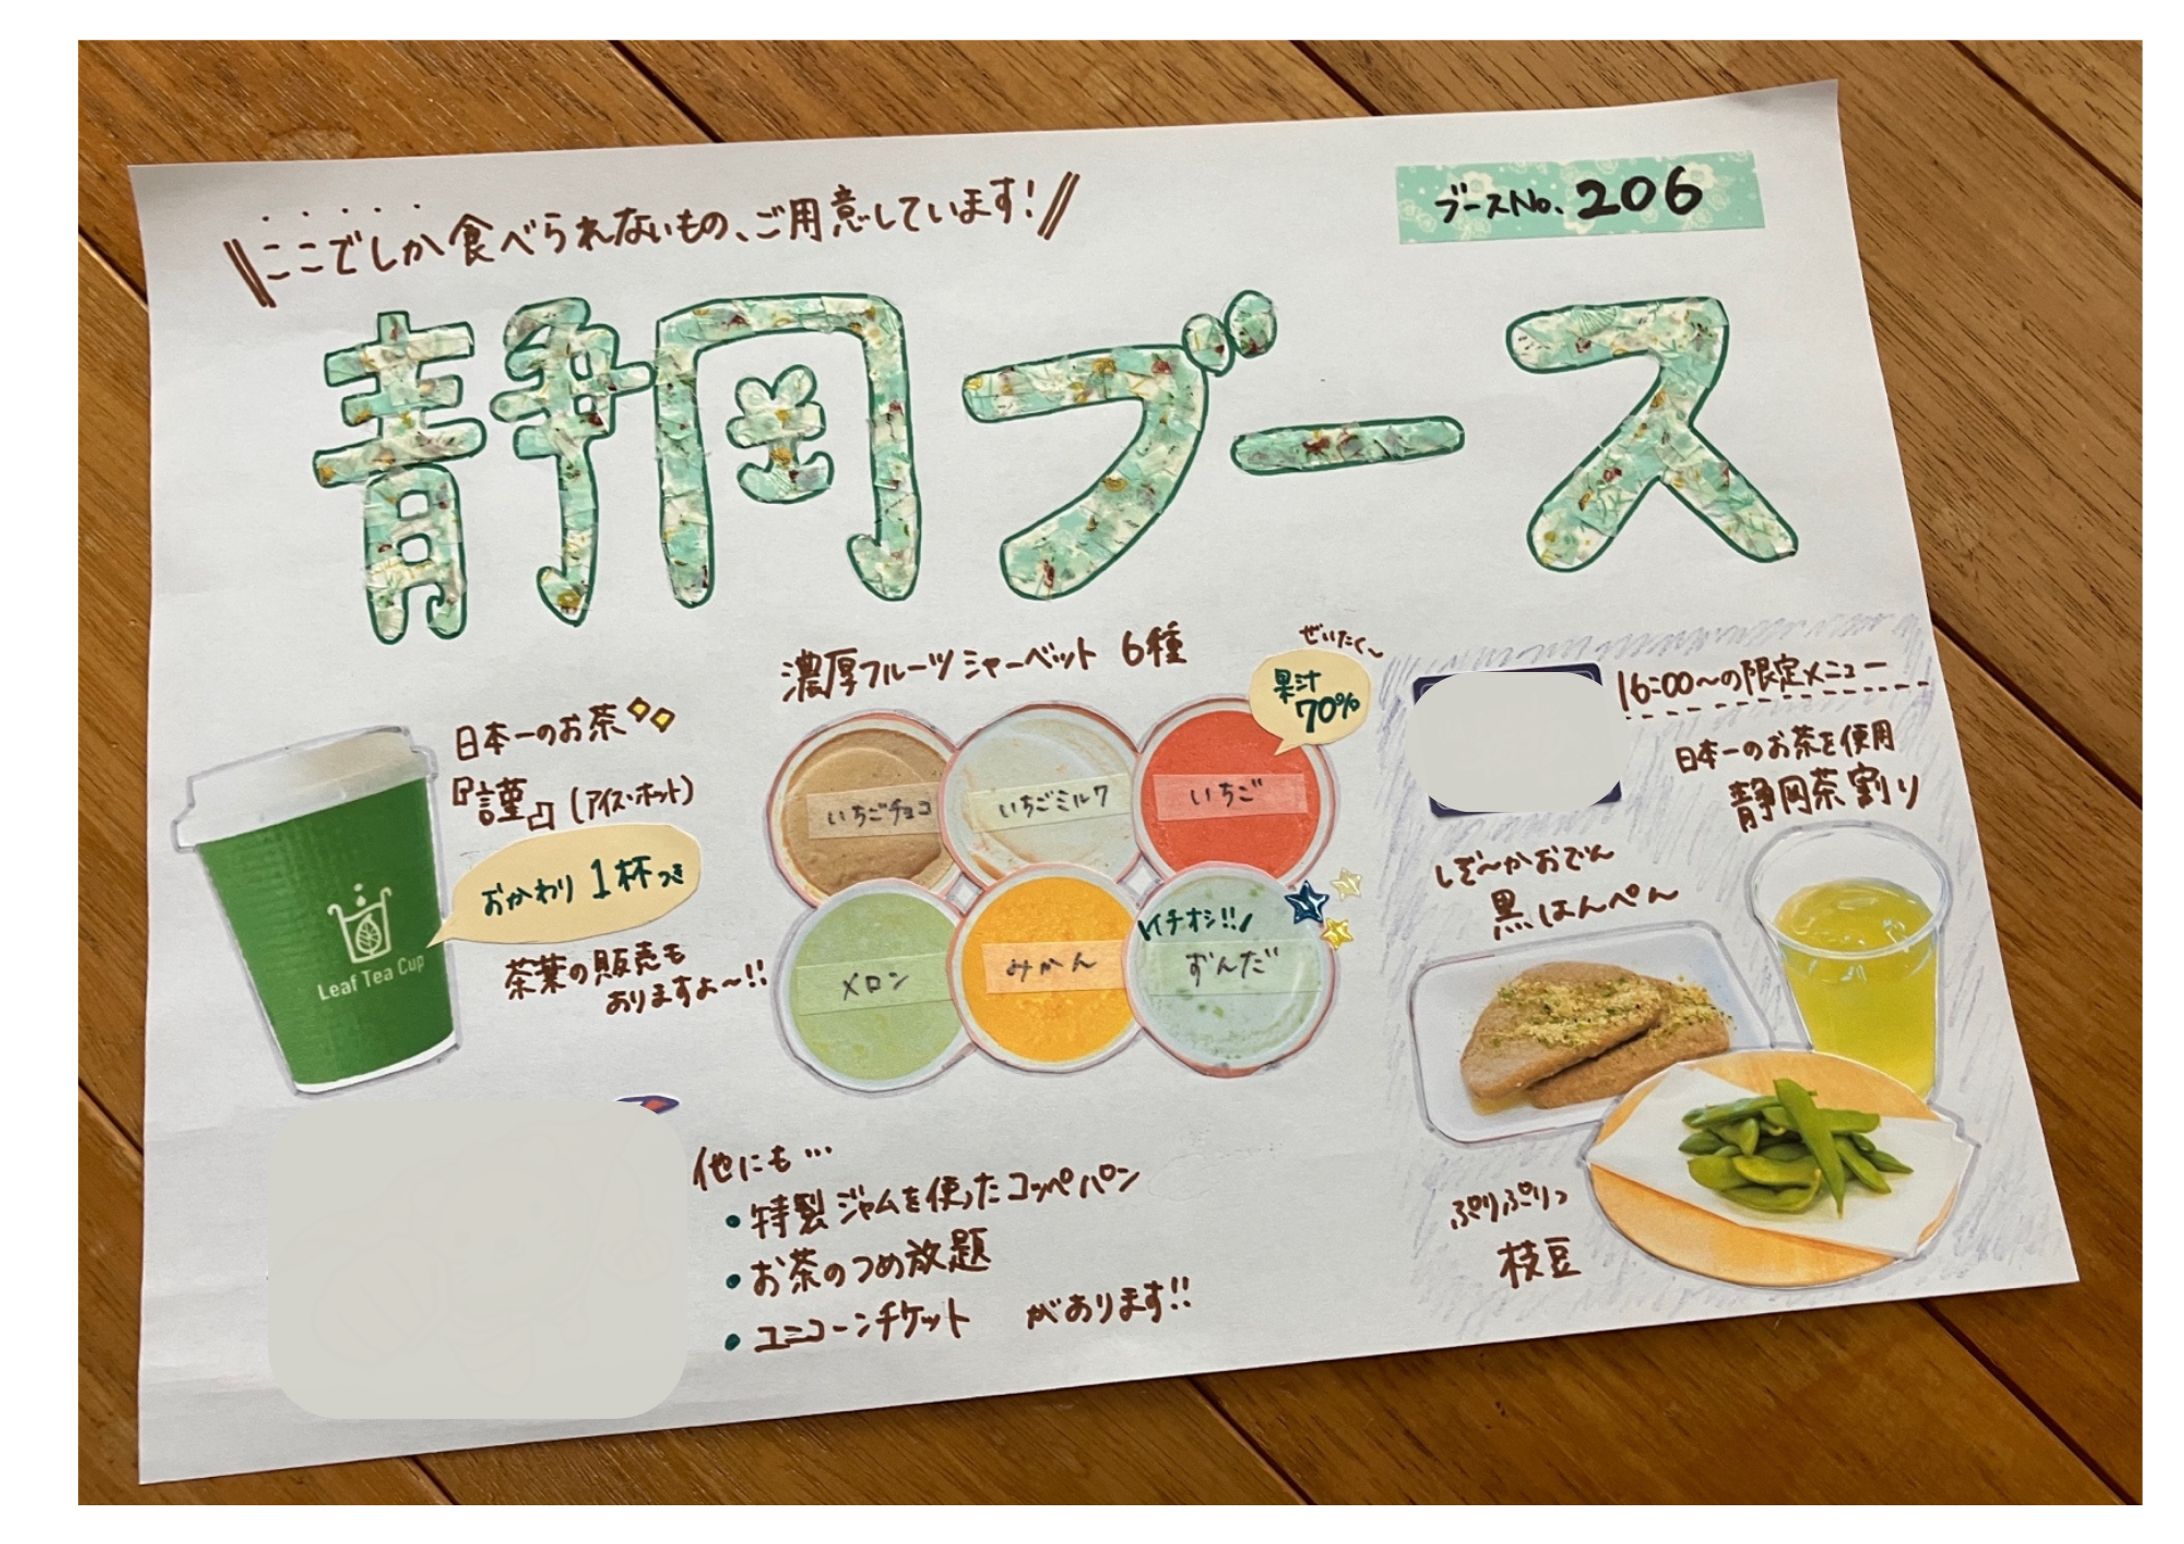 ここでしか食べられないもの、ご用意しています！
ブースNo. 206
静岡ブース
日本一のお茶
『謹』(アイス・ホット)
おかわり1杯つき
茶葉の販売も
ありますよ〜!!
Leaf Tea Cup
濃厚フルーツシャーベット 6種
ぜいたく〜
果汁
70%
いちごチョコ
いちごミルク
いちご
メロン
みかん
イチオシ!!
ずんだ
16:00〜の限定メニュー
日本一のお茶を使用
静岡茶割り
しぞ〜かおでん
黒はんぺん
ぷりぷりっ
枝豆
他にも…
・特製ジャムを使ったコッペパン
・お茶のつめ放題
・ユニコーンチケット があります!!